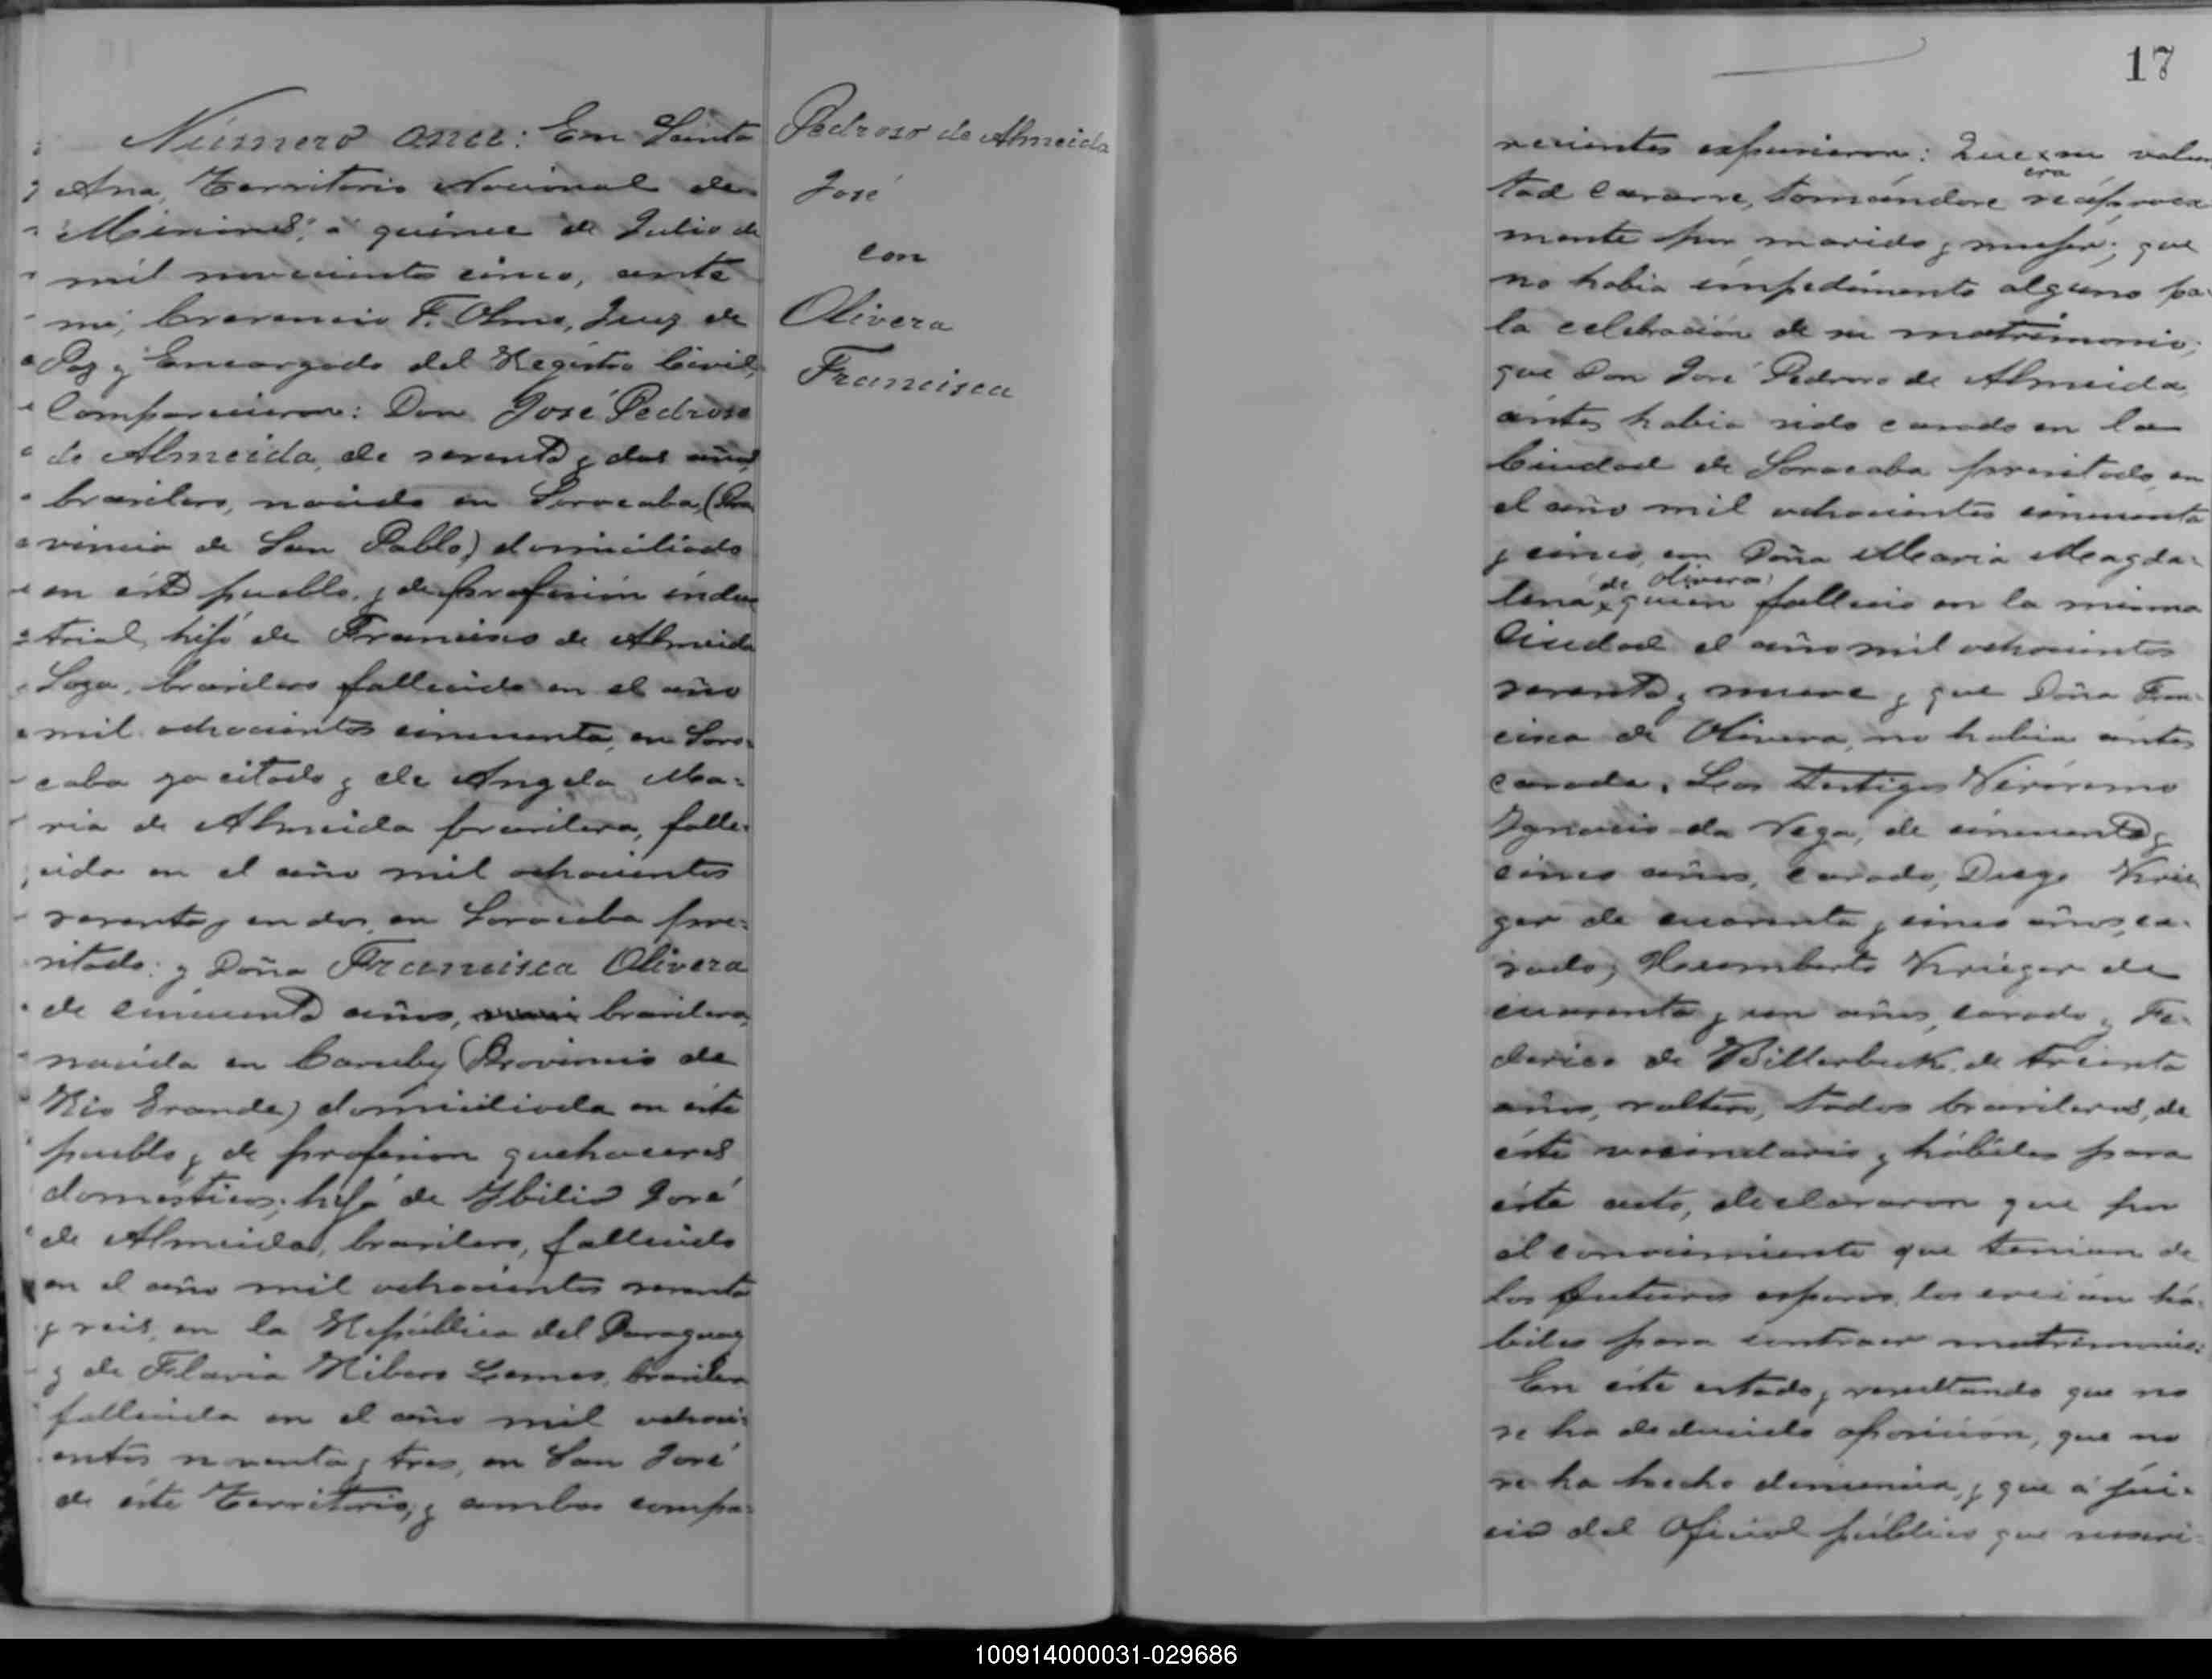 Número once: En Santa
Ana, Territorio Nacional de
Misiones, á quince de Julio de
mil novecientos cinco, ante
mi, F. Olmo, Juez de
Paz y Encargado del Registro Civil,
Comparecieron: Don José Pedroso
de Almeida, de sesenta y dos años,
brasilero, nacido en Sorocaba, (Pro
vincia de San Pablo) domiciliado
en éste pueblo, y de profesión indus
trial, hijo de Francisco de Almeida
brasilero fallecido en el año
mil ochocientos cincuenta, en Soro-
caba ya citado y de Angela Ma-
ria de Almeida brasilera, falle-
cida en el año mil ochocientos
en Sorocaba pre-
citado; y Doña Francisca Olivera
de cincuenta años, brasilera,
nacida en (Provincia de
Rio Grande) domiciliada en éste
pueblo y de profesion quehaceres
domésticos; hija de José
de Almeida, brasilero, fallecido
en el año mil ochocientos sesenta
y seis, en la República del Paraguay
y de Flavia Ribero Lemes, brasilera
fallecida en el año mil ochoci-
entos noventa y tres, en San José
de éste Territorio, y ambos compa-
Pedroso de Almeida
José
con
Olivera
Francisca
17
recientes expusieron: Que era su volun
tad casarse, tomándose recíproca
mente por marido y mujer; que
no habia impedimento alguno pa
la celebración de su matrimonio;
que Don José Pedroso de Almeida,
ántes habia sido casado en la
Ciudad de Sorocaba precitado, en
el año mil ochocientos cincuenta
y cinco, con Doña Maria Magda-
lena de Olivera quien falleció en la misma
Ciudad el año mil ochocientos
sesenta y nueve y que Doña Fran-
cisca de Olivera, no habia ántes
casada. Los testigos
Ygnacio da Vega, de cincuenta y
cinco años, casado, Diego Krie
ger de cuarenta y cinco años, ca-
sado, Krieger de
cuarenta y un años, casado y Fe-
derico de Billerbeck, de treinta
años, soltero, todos brasileros, de
éste vecindario y hábiles para
éste acto, declararon que por
el conocimiento que tenian de
los futuros esposos, los creían há-
biles para contraer matrimonio:
En éste estado, y resultando que no
se ha deducido oposición, que no
se ha hecho denuncia, y que á jui-
cio del Oficial público que suscri-
100914000031-029686